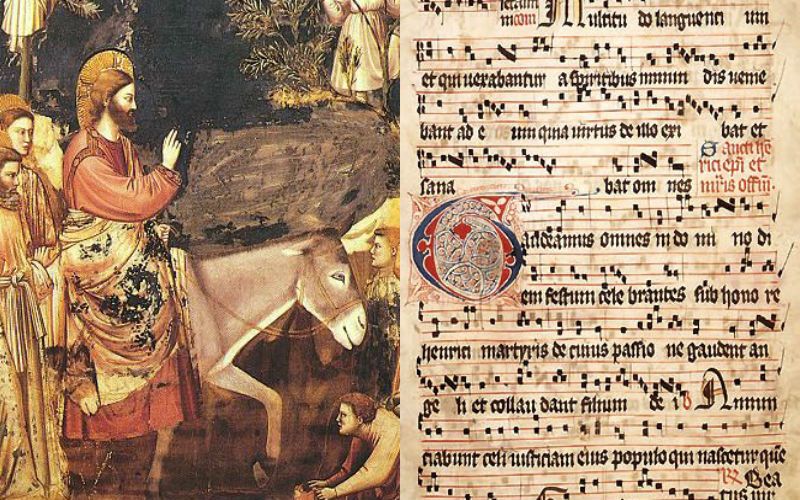 Multitu do languenti um
et qui uexabantur a spiritibus inmun dis uenie
bant ad e um quia uirtus de illo exi bat et
sana bat om nes
Sancti hē
rici epī et
mr̄is offm̄.
Gaudeamus omnes in do mi no di
em festum cele brantes sub hono re
henrici martyris de cuius passio ne gaudent an
ge li et collau dant filium de i Annun
ciabunt celi iusticiam eius populo qui nascetur que
Bea
tus uir